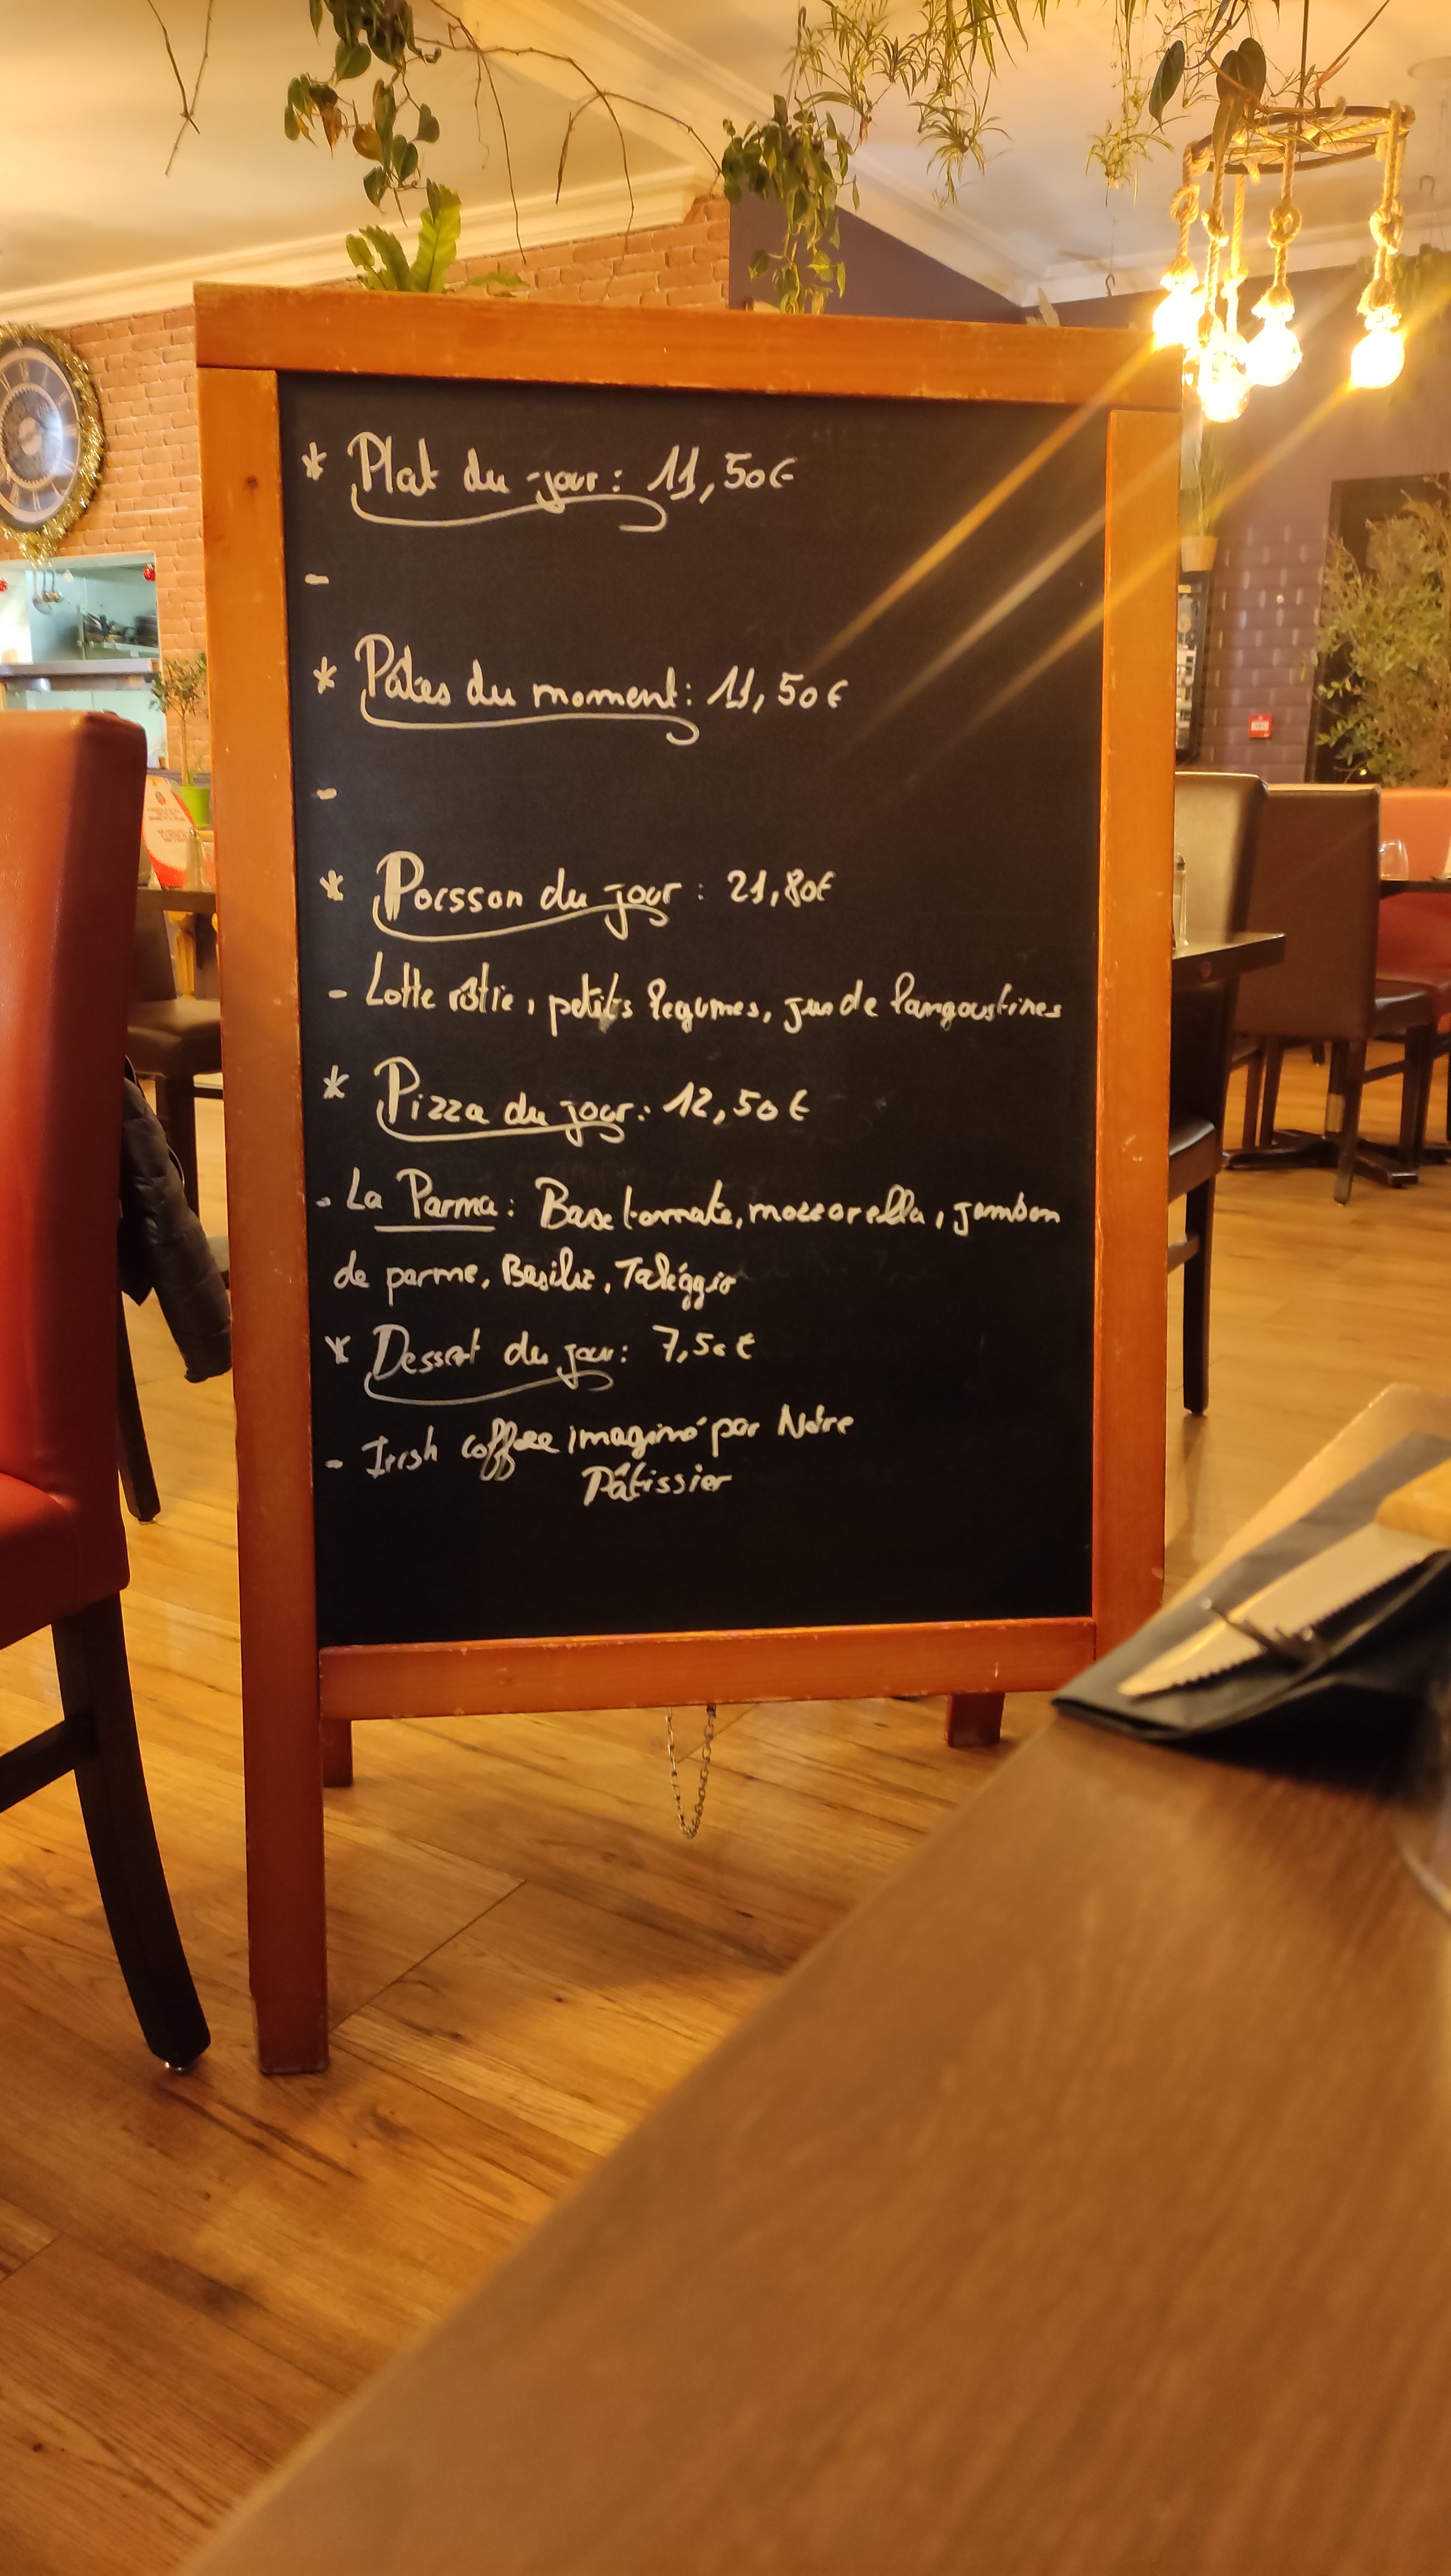 * Plat du jour : 11,50€
-
* Pâtes du moment : 11,50€
-
* Poisson du jour : 21,80€
- Lotte rôtie, petits légumes, jus de langoustines
* Pizza du jour : 12,50€
- La Parma : Base tomate, mozzarella, jambon
de parme, Basilic, Taléggio
* Dessert du jour : 7,50€
- Irish coffee imaginé par Notre
Pâtissier